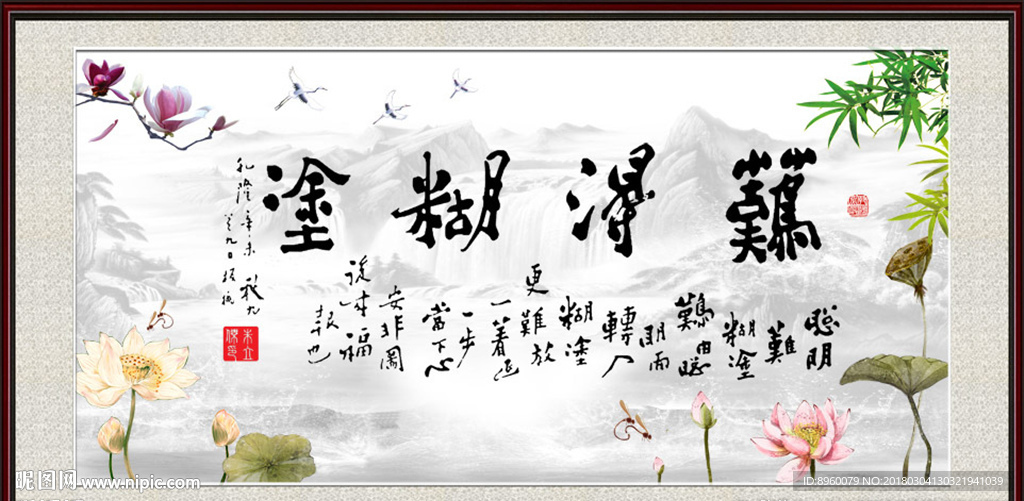 難得糊塗
聰明
難
糊塗
難由聰
明而
轉入
糊塗
更難放
一著退
一步
當下心
安非圖
後來福
報也
乾隆辛未秋九
九日板橋
昵图网 www.nipic.com
ID:8960079 NO:20180304130321941039